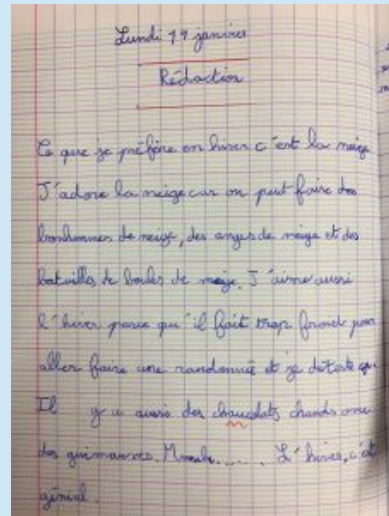 Lundi 14 janvier
Rédaction
Ce que je préfère en hiver c'est la neige
J'adore la neige car on peut faire des
bonhommes de neige, des anges de neige et des
batailles de boules de neige. J'aime aussi
l'hiver parce qu'il fait trop froid pour
aller faire une randonnée et je déteste ça.
Il y a aussi des chaucolats chauds avec
des guimauves. Mmmh...... L'hiver, c'est
génial.